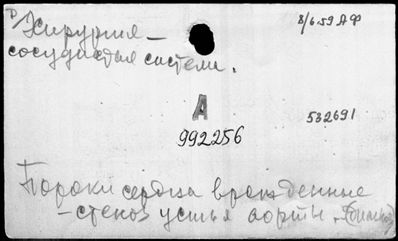 Хирургия –
сосудистая система.
8/659 АФ
А
992256
532691
Пороки сердца врожденные
– стеноз устья аорты.